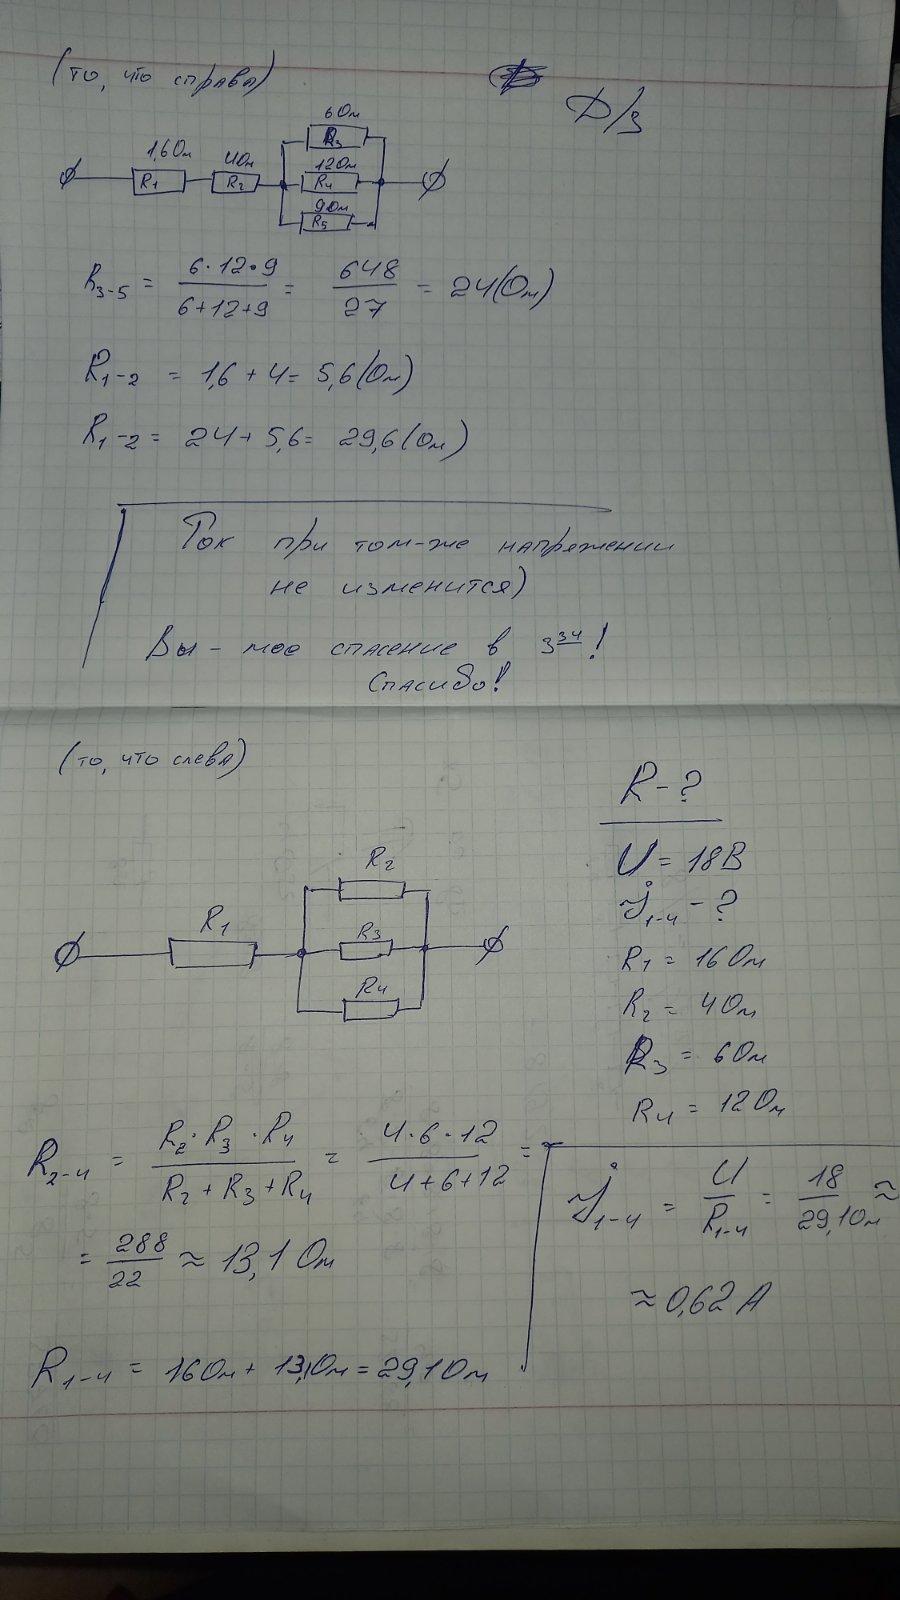 (то, что справа)
Д/з
1,6Ом 4Ом 6Ом
R1 R2 R3
12Ом
R4
9Ом
R5
R3-5 = 6·12·9 / 6+12+9 = 648 / 27 = 24(Ом)
R1-2 = 1,6 + 4 = 5,6(Ом)
R1-2 = 24 + 5,6 = 29,6(Ом)
Ток при том-же напряжении
не изменится)
Вы - мое спасение в 3 34!
Спасибо!
(то, что слева)
R-?
U = 18В
J1-4 - ?
R1 = 16Ом
R2 = 4Ом
R3 = 6Ом
R4 = 12Ом
R2
R1
R3
R4
R2-4 = R2·R3·R4 / R2+R3+R4 = 4·6·12 / 4+6+12 =
= 288 / 22 ≈ 13,1Ом
R1-4 = 16Ом + 13,1Ом = 29,1Ом
J1-4 = U / R1-4 = 18 / 29,1Ом ≈
≈ 0,62А